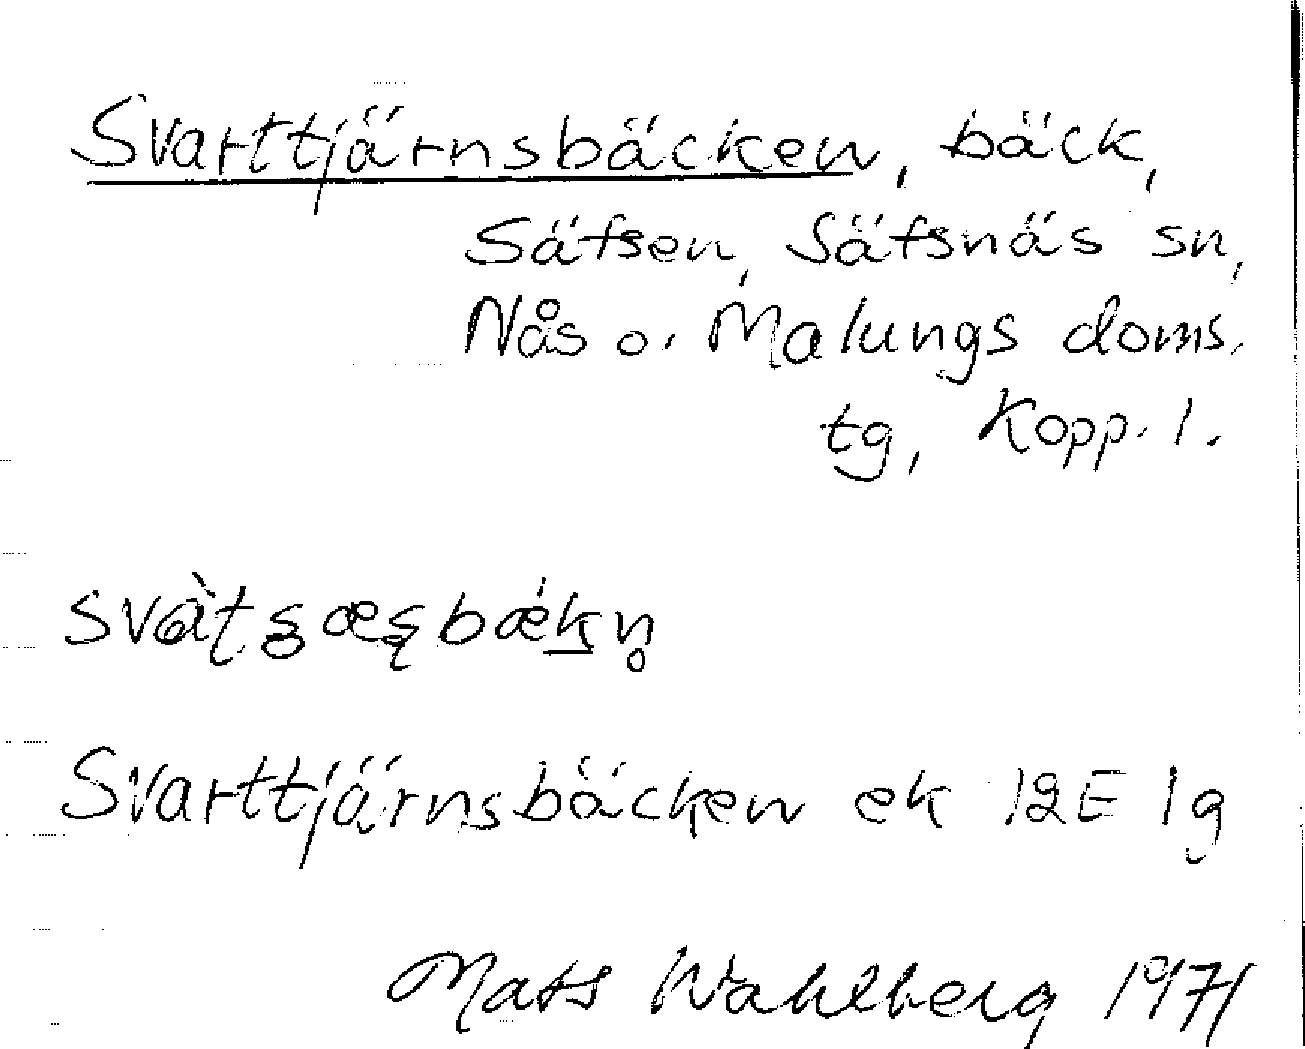 Svarttjärnsbäcken, bäck,
Säfsen, Säfsnäs sn,
Nås o. Malungs doms.
tg, Kopp. l.
Svarttjärnsbäcken ek 12E 1g
Mats Wahlberg 1971